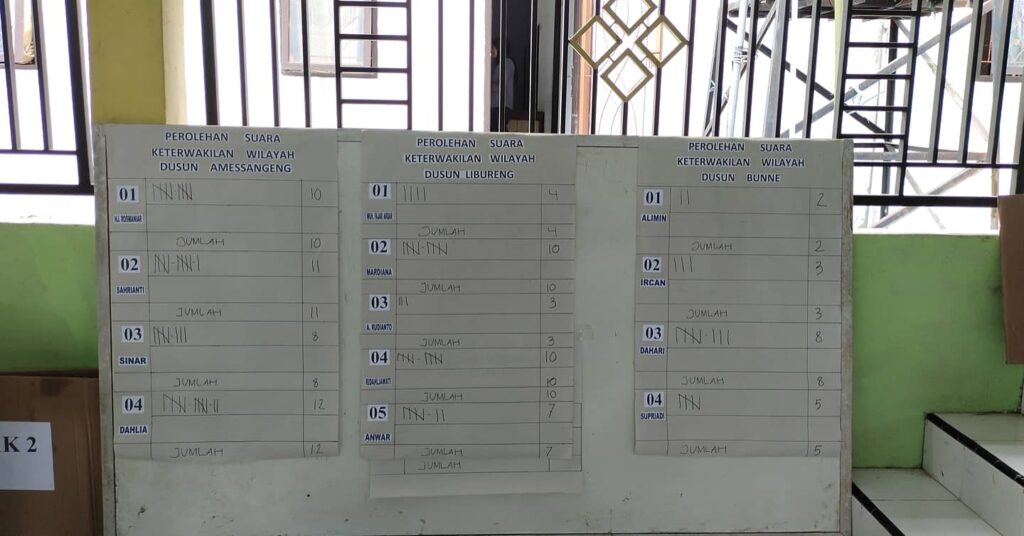 PEROLEHAN SUARA
KETERWAKILAN WILAYAH
DUSUN AMESSANGENG
01 10
HJ. ROSMANIAR
JUMLAH 10
02 11
SAHRIANTI
JUMLAH 11
03 8
SINAR
JUMLAH 8
04 12
DAHLIA
JUMLAH 12
PEROLEHAN SUARA
KETERWAKILAN WILAYAH
DUSUN LIBURENG
01 4
MUH. FAJAR
JUMLAH 4
02 10
MARDIANA
JUMLAH 10
03 3
A. RUDIANTO
JUMLAH 3
04 10
10
JUMLAH 10
05 7
ANWAR
JUMLAH 7
JUMLAH
PEROLEHAN SUARA
KETERWAKILAN WILAYAH
DUSUN BUNNE
01 2
ALIMIN
JUMLAH 2
02 3
IRCAN
JUMLAH 3
03 8
DAHARI
JUMLAH 8
04 5
SUPRIADI
JUMLAH 5
K 2